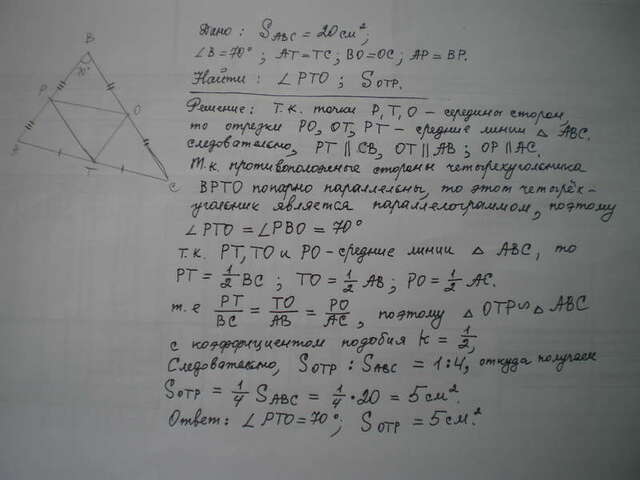 Дано: S ABC = 20 см²;
∠B = 70°; AT = TC; BO = OC; AP = BP.
Найти: ∠PTO; S OTP.
Решение: Т.к. точки P, T, O – середины сторон,
то отрезки PO, OT, PT – средние линии △ ABC.
следовательно, PT ∥ CB, OT ∥ AB; OP ∥ AC.
Т.к. противоположные стороны четырехугольника
BPTO попарно параллельны, то этот четырёх-
угольник является параллелограммом, поэтому
∠PTO = ∠PBO = 70°
т.к. PT, TO и PO – средние линии △ ABC, то
PT = 1/2 BC; TO = 1/2 AB; PO = 1/2 AC.
т.е PT/BC = TO/AB = PO/AC, поэтому △ OTP ∽ △ ABC
с коэффициентом подобия K = 1/2,
Следовательно, S OTP : S ABC = 1:4, откуда получаем
S OTP = 1/4 S ABC = 1/4 · 20 = 5 см².
Ответ: ∠PTO = 70°; S OTP = 5 см².
B
70°
P
O
T
C